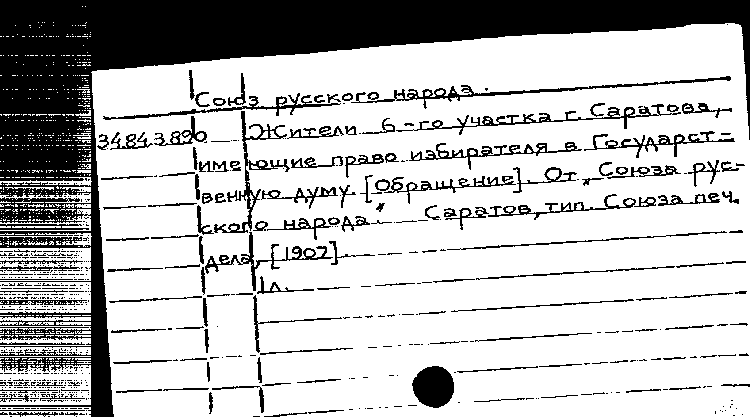 Союз русского народа.
34.84.3.890 Жители 6-го участка г. Саратова,
имеющие право избирателя в Государст=
венную думу. [Обращение]. От „Союза рус-
ского народа". Саратов, тип. Союза печ.
дела, [1907].
1 л.